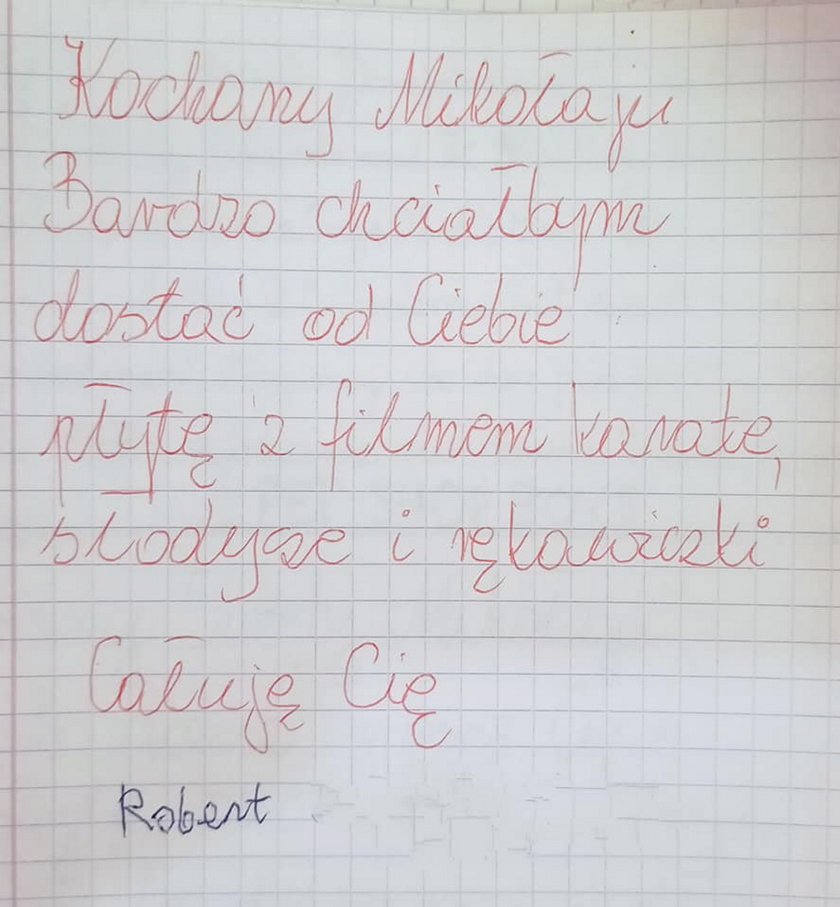 Kochany Mikołaju
Bardzo chciałbym
dostać od Ciebie
płytę z filmem karate,
słodycze i rękawiczki
Całuję Cię
Robert